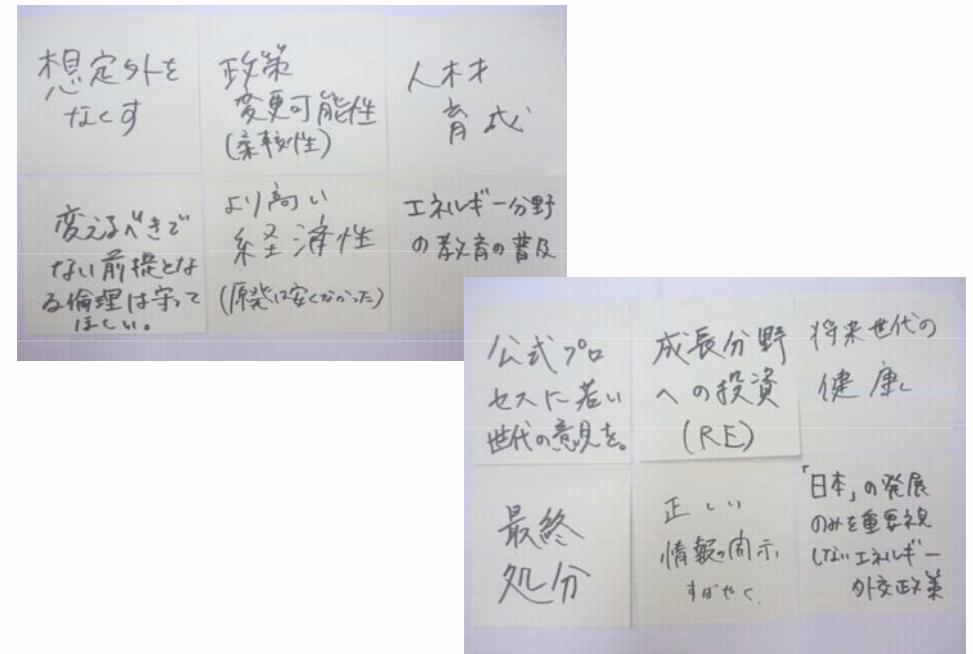 想定外を
なくす
政策
変更可能性
(柔軟性)
人材
育成
変えるべきで
ない前提とな
る倫理は守って
ほしい。
より高い
経済性
(原発は安くなかった)
エネルギー分野
の教育の普及
公式プロ
セスに若い
世代の意見を。
成長分野
への投資
(RE)
将来世代の
健康
最終
処分
正しい
情報の開示
すばやく.
「日本」の発展
のみを重要視
しないエネルギー
外交政策